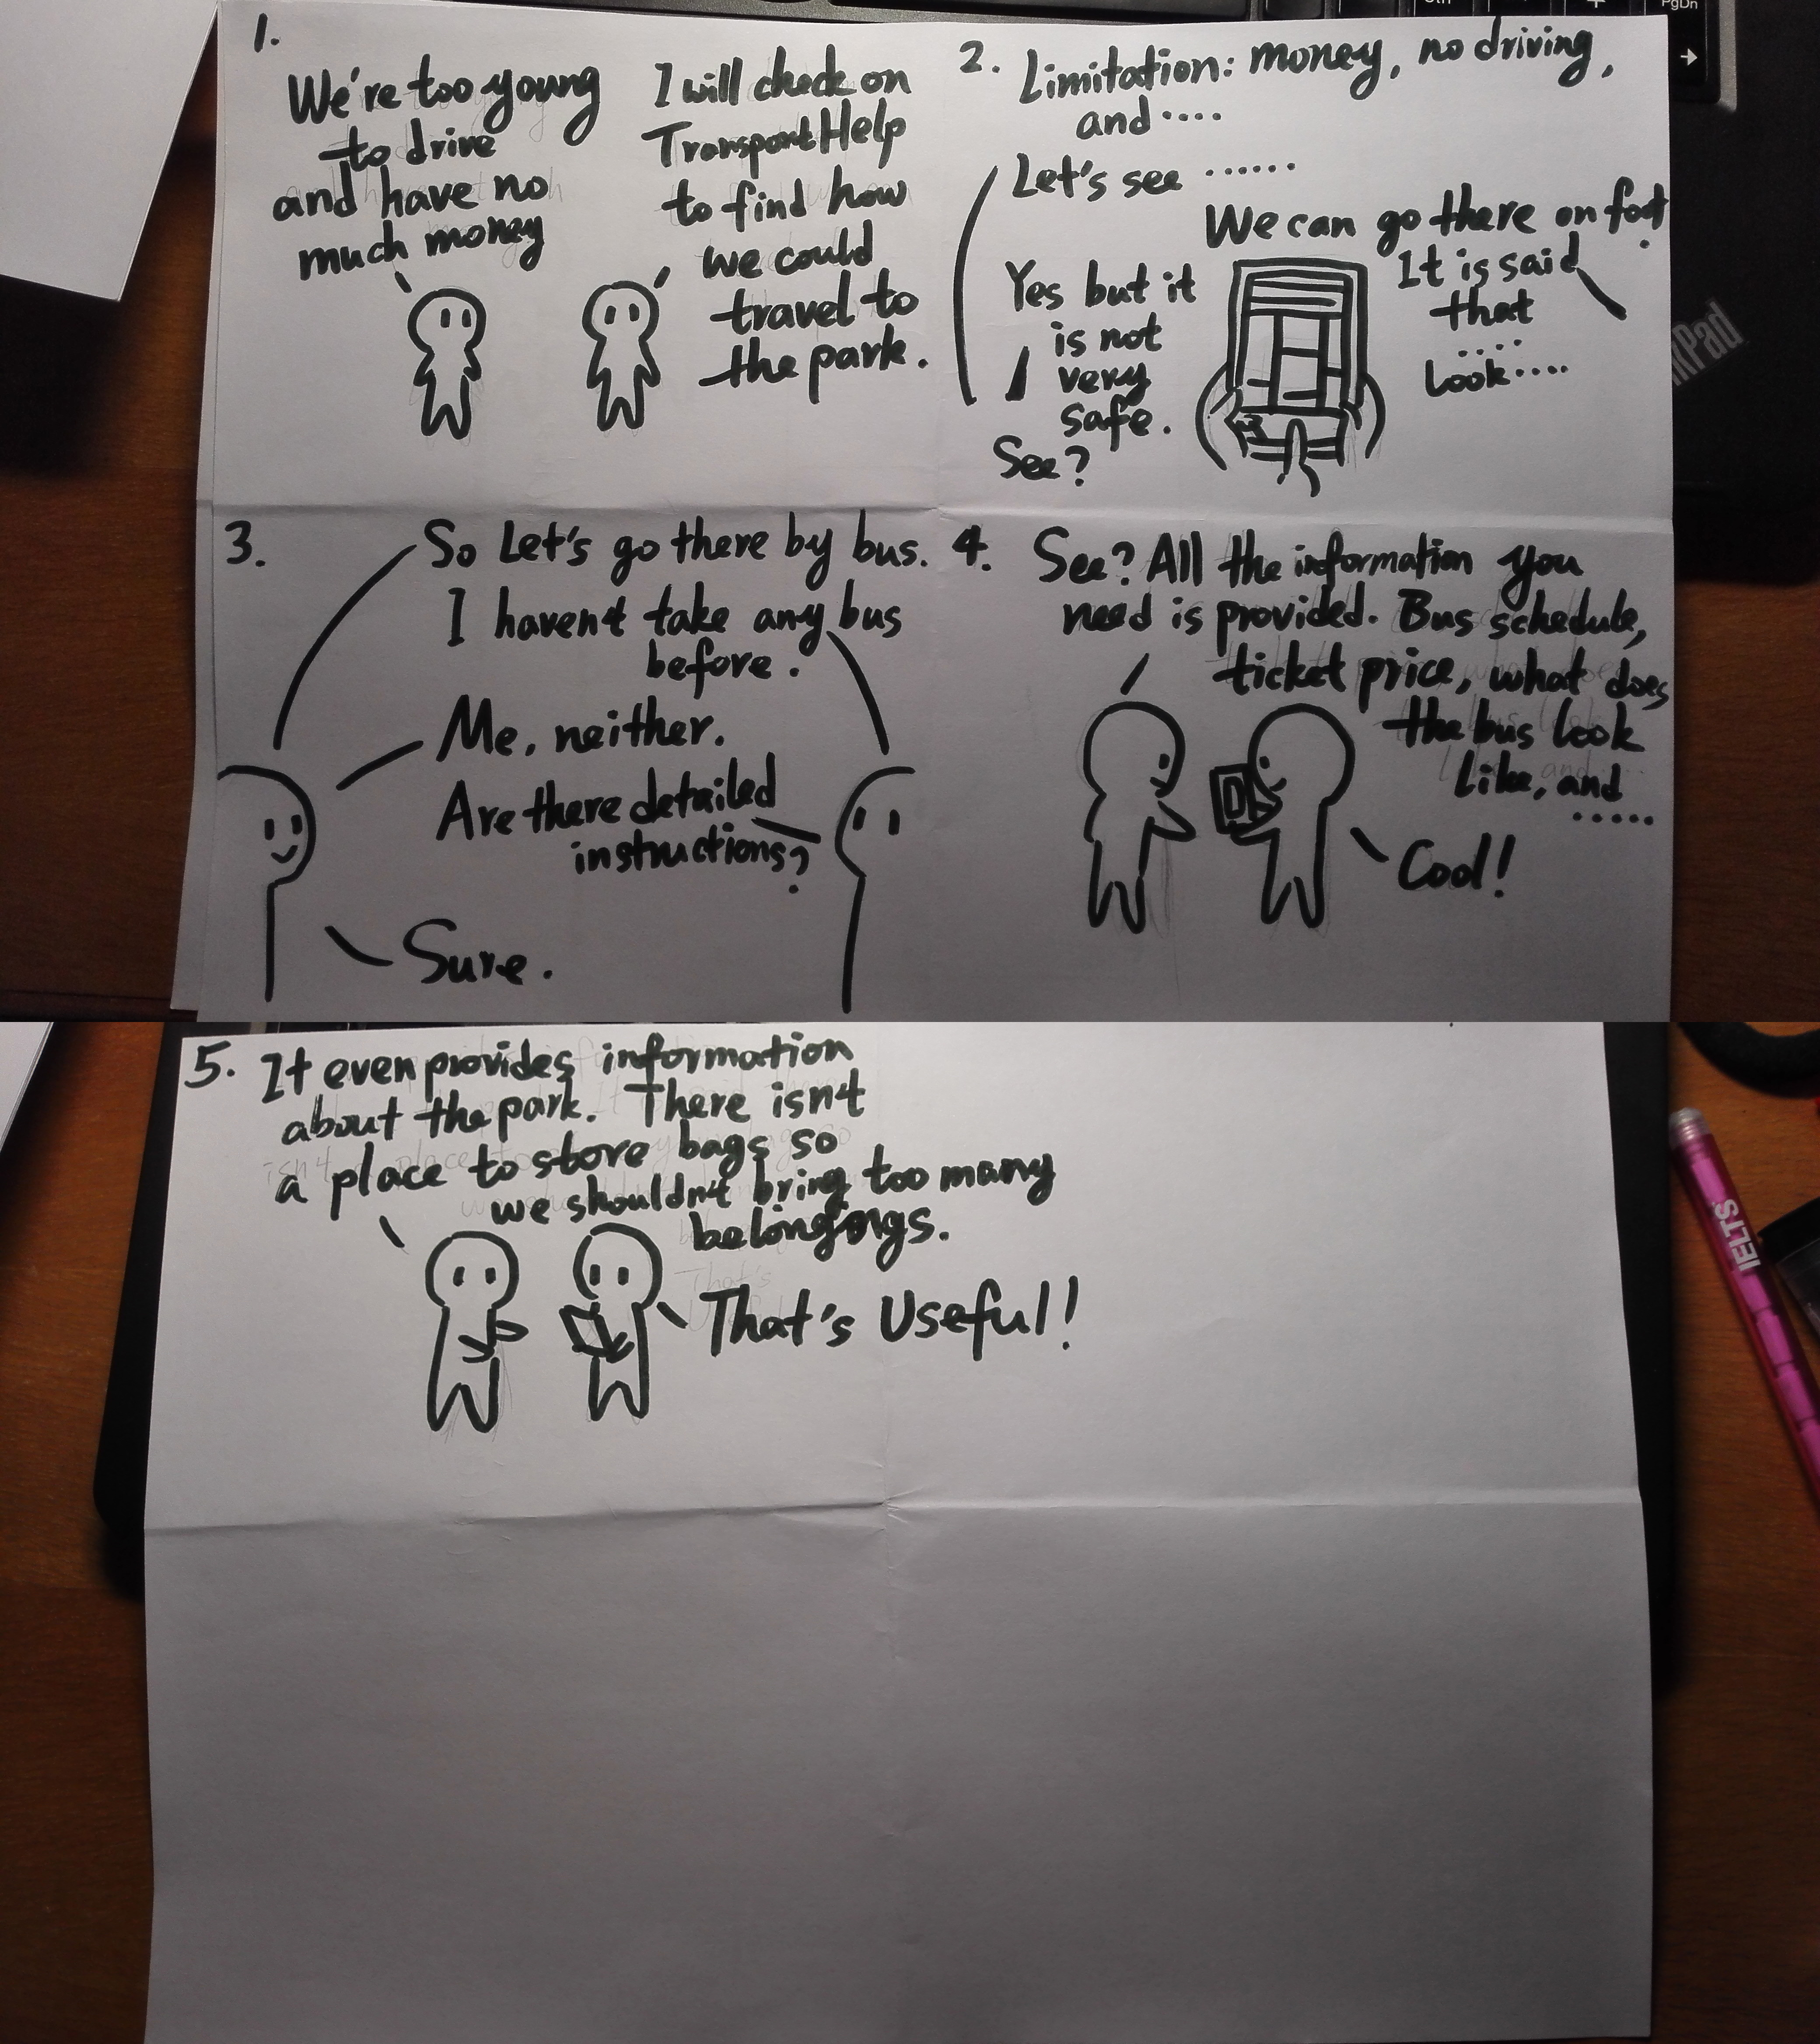 1.
We're too young
to drive
and have no
much money
I will check on
Transport Help
to find how
we could
travel to
the park.
2. Limitation: money, no driving,
and ....
Let's see ......
We can go there on foot.
It is said
that
....
Look....
Yes but it
is not
very
safe.
See?
3. So Let's go there by bus.
I haven't take any bus
before.
Me, neither.
Are there detailed
instructions?
Sure.
4. See? All the information you
need is provided. Bus schedule,
ticket price, what does
the bus look
like, and
.....
Cool!
5. It even provides information
about the park. There isn't
a place to store bags so
we shouldn't bring too many
belongings.
That's Useful!
PgDn
IELTS